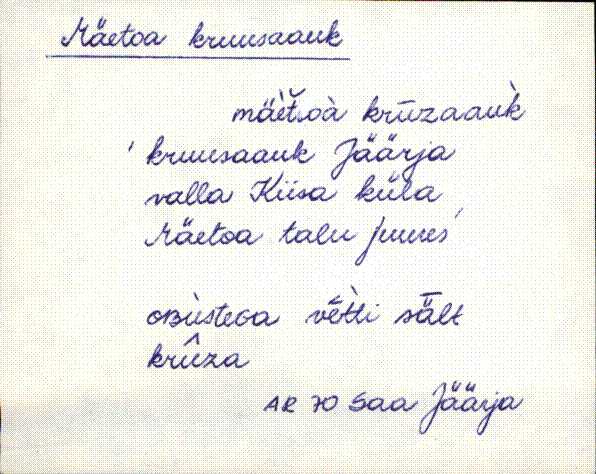 Mäetoa kruusaauk
mäèt̆.oà krūzaauk̀
' kruusaauk Jäärja
valla Kiisa küla
Mäetoa talu juures'
oʙùstᴇɢa vè̄tti sǟlt
krûza
AR 70 Saa Jäärja